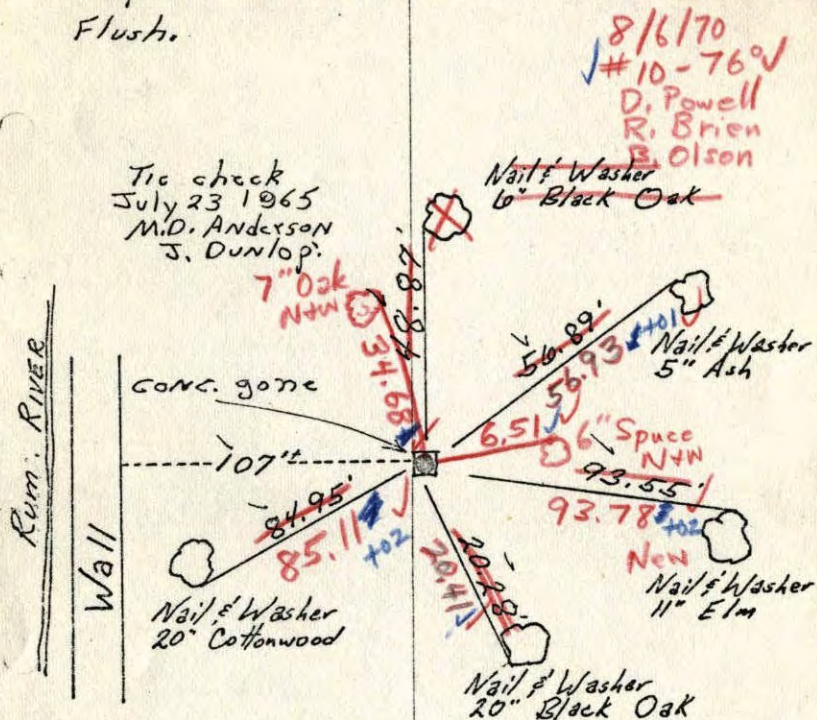 Flush.
8/6/70
#10-76°
D. Powell
R. Brien
B. Olson
Tie check
July 23 1965
M.D. Anderson
J. Dunlop.
Nail & Washer
6" Black Oak
7" Oak
N+W
48.87'
34.68
56.89'
56.93
+01
Nail & Washer
5" Ash
CONC. gone
6.51
6" Spuce
N+W
RUM. RIVER
Wall
107'±
93.55'
93.78
+02
New
Nail & Washer
11" Elm
84.95'
85.11
+02
Nail & Washer
20" Cottonwood
20.28'
20.41
Nail & Washer
20" Black Oak